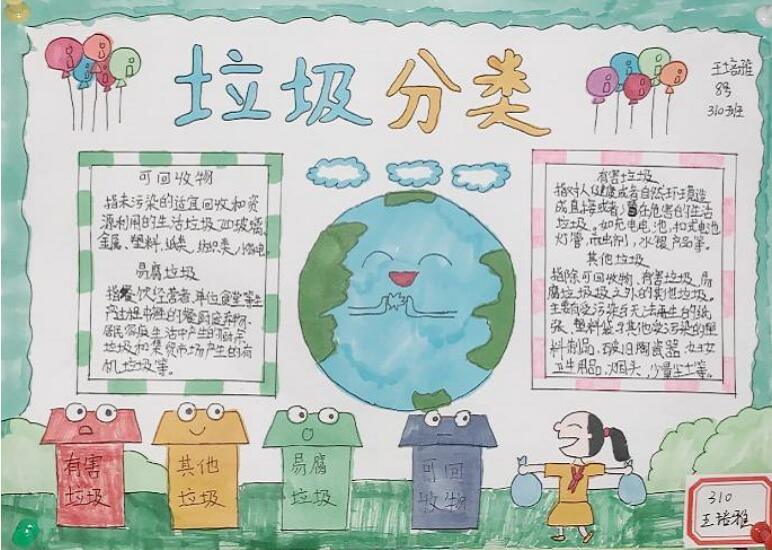 垃圾分类
王培雅
8号
310班
可回收物
指未污染的适宜回收和资
源利用的生活垃圾如玻璃
金属、塑料、纸类、纺织类、小家电
易腐垃圾
指餐饮经营者、单位食堂等生
产过程中产生的餐厨废弃物、
居民家庭生活中产生的
垃圾和集贸市场产生的有
机垃圾等。
有害垃圾
指对人健康或者自然环境造
成直接或者潜在危害的生活
垃圾。如充电电池,扣式电池
灯管,杀虫剂,水银产品等。
其他垃圾
指除可回收物、有害垃圾、易
腐垃圾之外的其他垃圾。
主要有受污染与无法再生的纸
张、塑料袋与其他受污染的塑
料制品,破旧陶瓷器,妇女
卫生用品,烟头,少量尘土等。
有害
垃圾
其他
垃圾
易腐
垃圾
可回
收物
310
王培雅